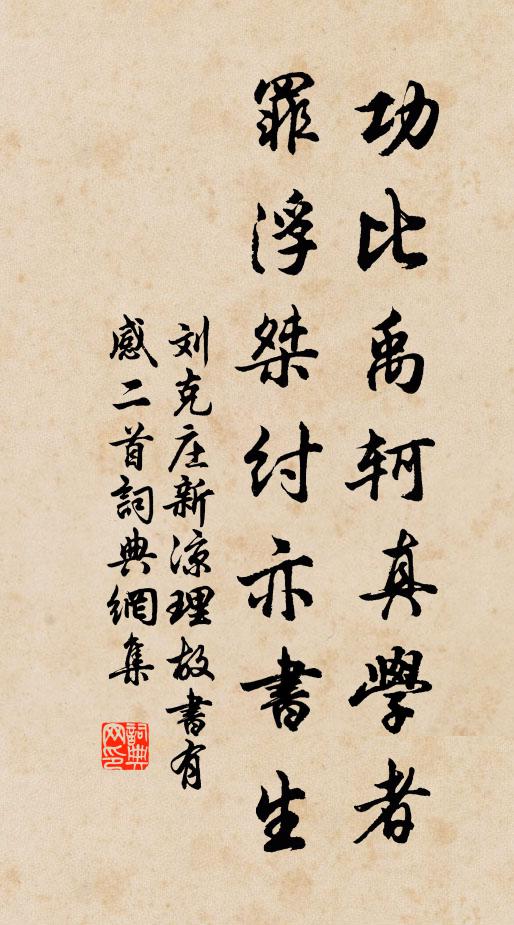 功比禹軻真學者
罪浮桀紂亦書生
刘克庄新凉理故書有
感二首詞典網集
詞典
网印